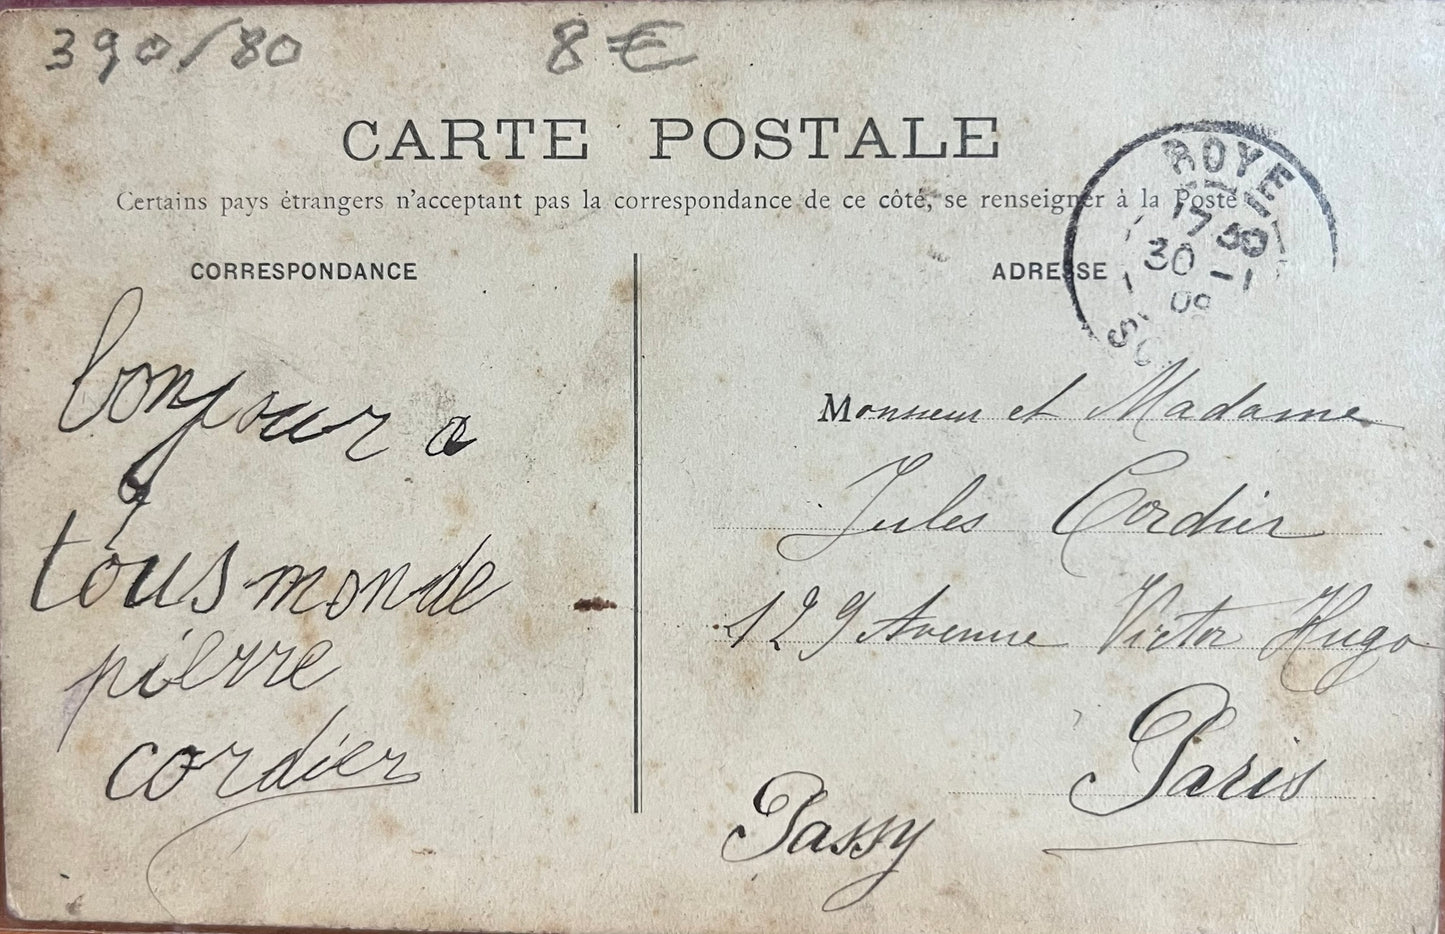 390/80 8€
CARTE POSTALE
Certains pays étrangers n'acceptant pas la correspondance de ce côté, se renseigner à la Poste
CORRESPONDANCE
ADRESSE
ROYE
17 30
30 - 1
09
SO
bonjour a
tous monde
pierre
cordier
Monsieur et Madame
Jules Cordier
129 Avenue Victor Hugo
Paris
Passy